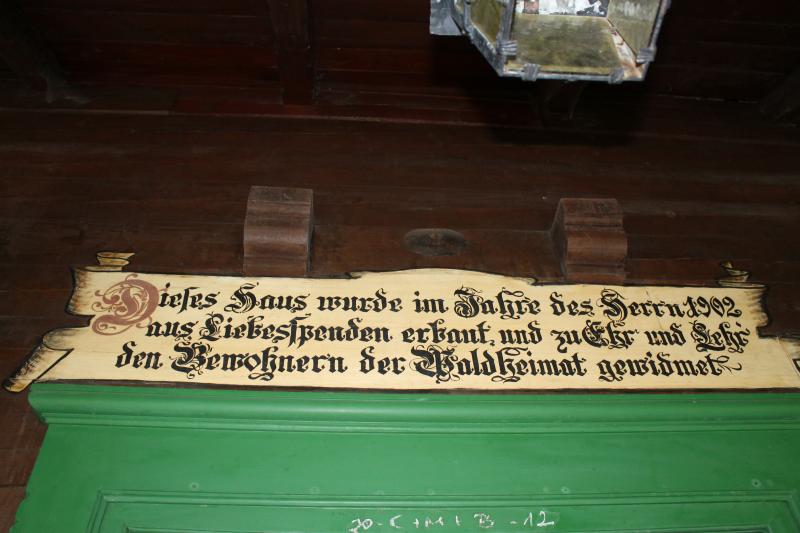 Dieses Haus wurde im Jahre des Herrn 1902
aus Liebesspenden erbaut, und zu Ehr und Lehr
den Bewohnern der Waldheimat gewidmet
20 - C + M + B - 12